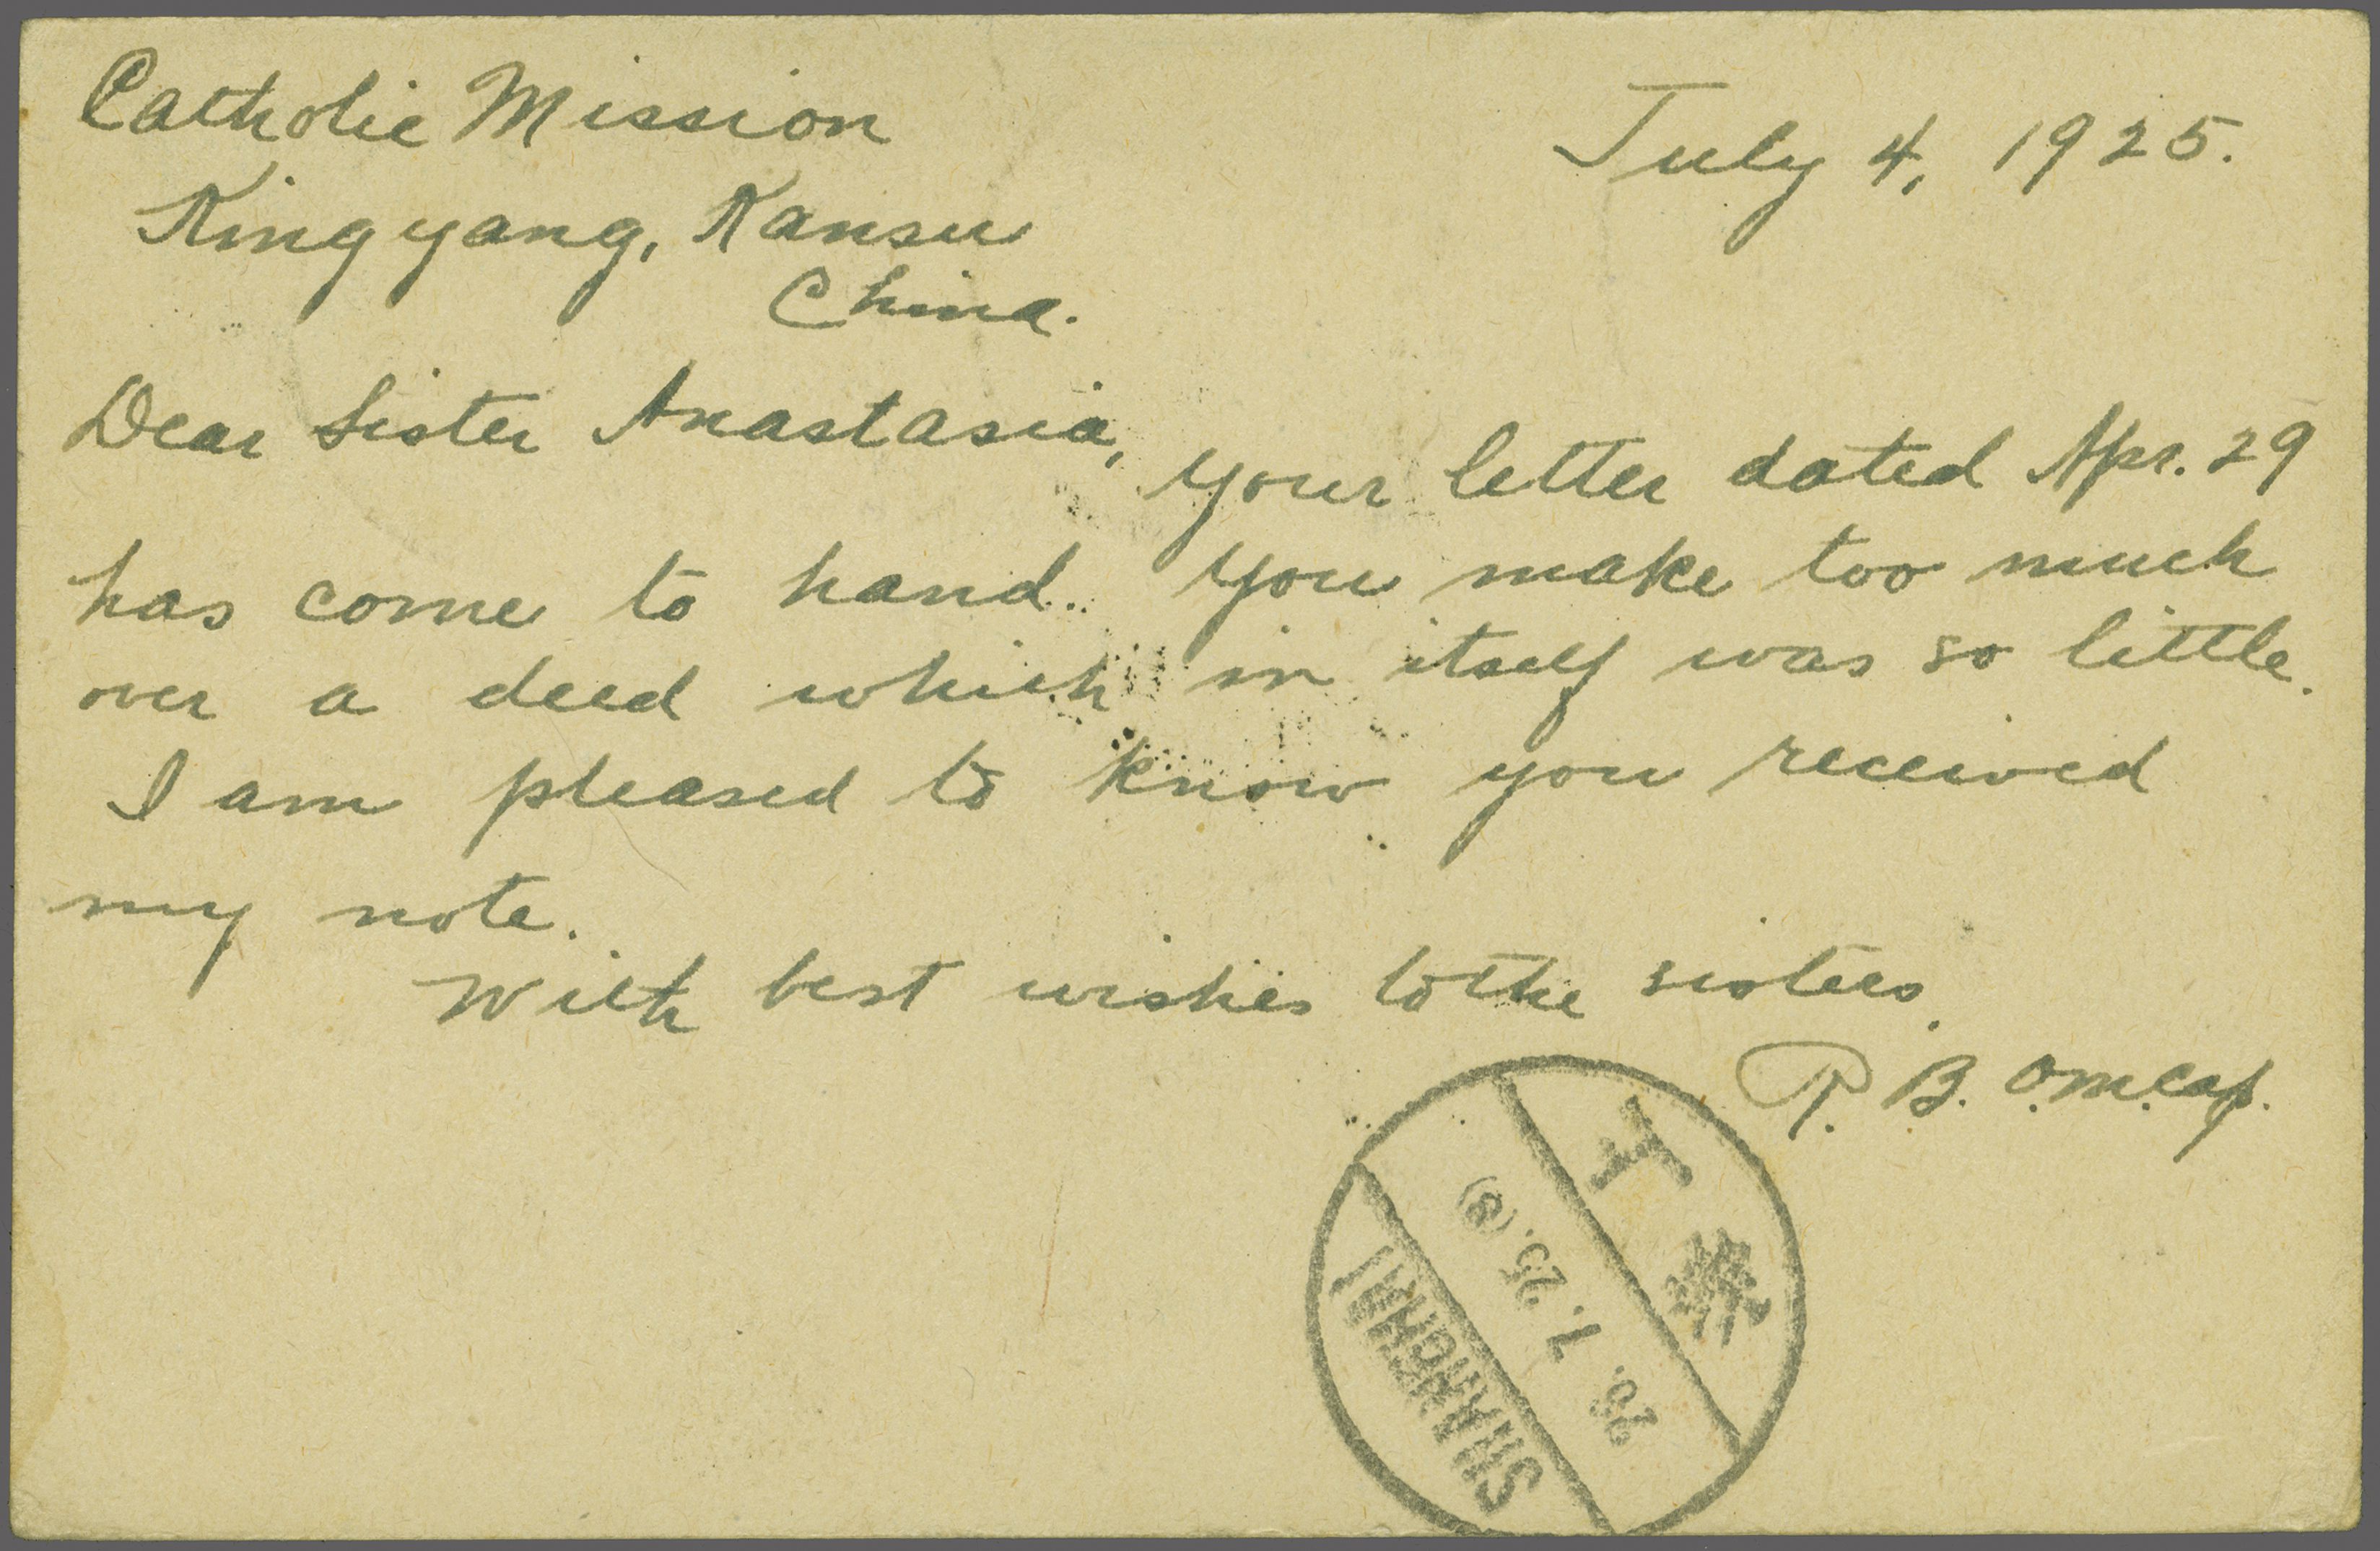 Catholic Mission
July 4, 1925.
Kingyang, Kansu
China.
Dear Sister Anastasia,
Your letter dated Apr. 29
has come to hand. You make too much
over a deed which in itself was so little.
I am pleased to know you received
my note.
With best wishes to the sisters.
P. B. O.M.Cap.
上海
26. 7. 25. (8)
SHANGHAI